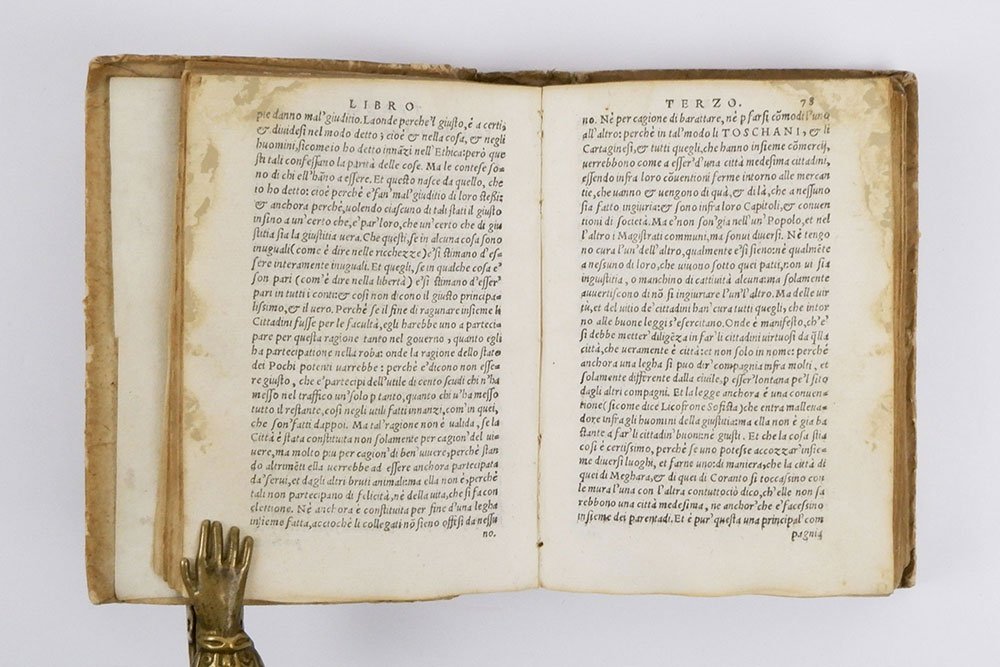 LIBRO
pie danno mal'giuditio. Laonde perche'l giusto, è a certi,
& dividesi nel modo detto; cioè & nella cosa, & negli
huomini, sicome io ho detto innãzi nell'Ethica: però que
sti tali confessano la parità delle cose. Ma le contese so-
no di chi ell'hãno a essere. Et questo nasce da quello, che
io ho detto: cioè perchè e'fan'mal'giuditio di loro stessi:
& anchora perchè, uolendo ciascuno di tali stati il giusto
insino a un'certo che, e'par'loro, che'un'certo che di giu
stitia sia la giustitia uera. Che questi, se in alcuna cosa sono
inuguali (come è dire nelle ricchezze) e'si stimano d'es-
sere interamente inuguali. Et quegli, se in qualche cosa e'
son'pari (com'è dire nella libertà) e'si stimano d'esser'
pari in tutti i conti: & cosi non dicono il giusto principa-
lissimo, & il uero. Perchè se il fine di ragunare insieme li
Cittadini fusse per le facultà, egli harebbe uno a parteci-
pare per questa ragione tanto nel gouerno, quanto egli
ha participatione nella roba: onde la ragione dello stato
dei Pochi potenti uarrebbe: perchè e'dicono non esse-
re giusto, che e'partecipi dell'utile di cento scudi chi n'ha
messo nel traffico un'solo p tanto, quanto chi u'ha messo
tutto il restante, cosi negli utili fatti innanzi, com'in quei,
che son'fatti dappoi. Ma tal'ragione non è ualida, se la
Città è stata constituta non solamente per cagion'del ui-
uere, ma molto piu per cagion'di ben'uiuere; perchè stan
do altrimẽti ella uerrebbe ad essere anchora partecipata
da'serui, et dagli altri bruti animali: ma ella non è, perchè
tali non partecipano di felicità, nè della uita, che si fa con
elettione. Nè anchora è constituita per fine d'una legha
insieme fatta, acciochè li collegati nõ sieno offesi da nessu
no.
TERZO. 78
no. Nè per cagione di barattare, nè p farsi cõmodi l'uno
all'altro: perchè in tal'modo li TOSCHANI, & li
Cartaginesi, & tutti quegli, che hanno insieme cõmercij,
uerrebbono come a esser'd'una città medesima cittadini,
essendo infra loro cõuentioni ferme intorno alle mercan
tie, che uanno & uengono di quà, & di là, che a nessuno
sia fatto ingiuria: & sono infra loro Capitoli, & conuen
tioni di società. Ma e'non son'già nell'un'Popolo, et nel
l'altro i Magistrati communi, ma sonui diuersi. Nè tengo
no cura l'un'dell'altro, qualmente e'si sieno: nè qualmẽte
a nessuno di loro, che uiuono sotto quei patti, non ui sia
ingiustitia, o manchino di cattiuità alcuna: ma solamente
auuertiscono di nõ si ingiuriare l'un'l'altro. Ma delle uir
tù, et del uitio de'cittadini han'cura tutti quegli, che intor
no alle buone leggi s'esercitano. Onde è manifesto, ch'e'
si debbe metter'diligẽza in far'li cittadini uirtuosi da q̃lla
città, che ueramente è città: et non solo in nome: perchè
anchora una legha si puo dir'compagnia infra molti, et
solamente differente dalla ciuile, p esser'lontana pe'l sito
dagli altri compagni. Et la legge anchora è una conuen-
tione (sicome dice Licofrone Sofista) che entra malleua-
dore infra gli huomini della giustitia: ma ella non è già ba
stante a far'li cittadin'buoni: nè giusti. Et che la cosa stia
cosi è certissimo, perchè se uno potesse accozzar'insie-
me diuersi luoghi, et farne uno: di maniera, che la città di
quei di Meghara, & di quei di Coranto si toccassino con
le mura l'una con l'altra contuttociò dico, ch'elle non sa
rebbono una città medesima, ne anchor'che e'facessino
insieme dei parentadi. Et è pur'questa una principal'com
pagnia